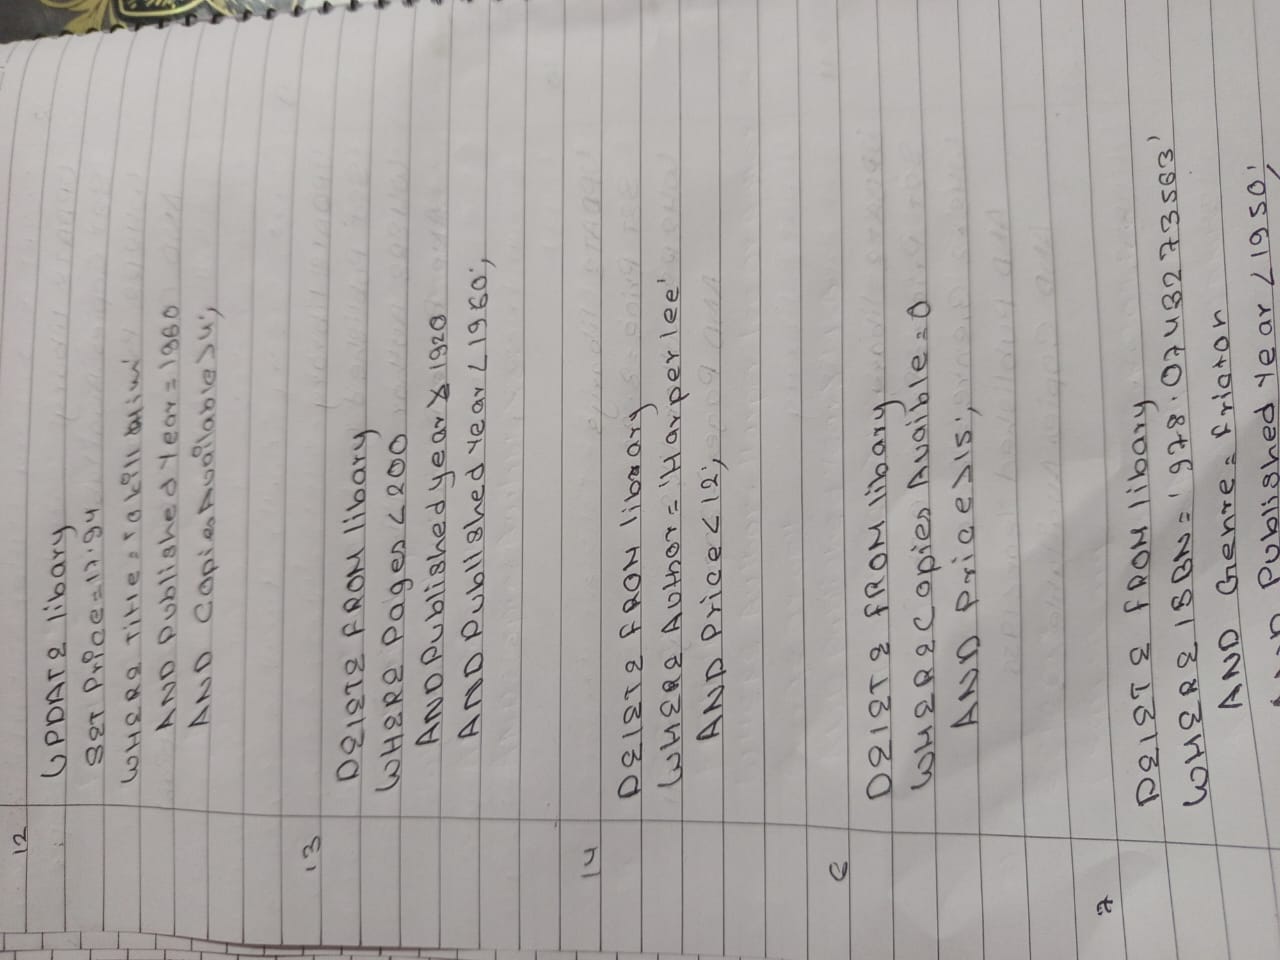 12
UPDATE libary
SET Price=17.94
WHERE Title=
AND Published Year=1960
AND CopiesAvailable>4;
13
DELETE FROM libary
WHERE Pages<200
AND Published year > 1920
AND Published year <1960;
14
DELETE FROM library
WHERE Author='Harper lee'
AND Price<12;
6
DELETE FROM libary
WHERE Copies Avaible=0
AND Price>15;
7
DELETE FROM libary
WHERE ISBN='978.0743273563'
AND Genre=friaton
AND Published Year <1950;